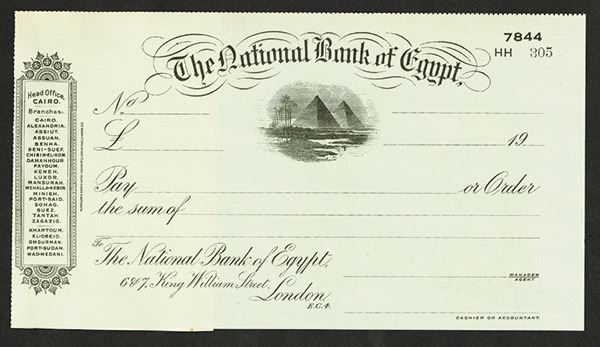 The National Bank of Egypt,
7844
HH 305
Head Office,
CAIRO.
Branches-
CAIRO.
ALEXANDRIA.
ASSIUT.
ASSUAN.
BENHA.
BENI-SUEF.
CHIBIN-EL-KOM.
DAMANHOUR.
FAYOUM.
KENEH.
LUXOR.
MANSURAH.
MEHALLA-KEBIR.
MINIEH.
PORT-SAID.
SOHAG.
SUEZ.
TANTAH.
ZAGAZIG.
KHARTOUM.
EL-OBEID.
OMDURMAN.
PORT-SUDAN.
WAD-MEDANI.
No
£ 19
Pay or Order
the sum of
To
The National Bank of Egypt,
6 & 7, King William Street,
London
E.C.4.
MANAGER
AGENT.
CASHIER OR ACCOUNTANT.